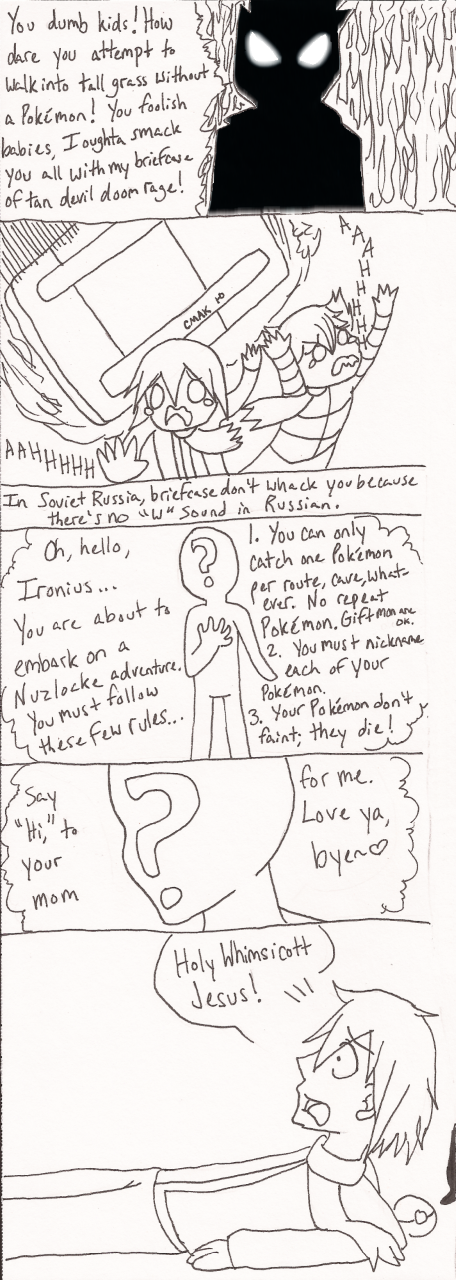 You dumb kids! How
dare you attempt to
walk into tall grass without
a Pokémon! You foolish
babies, I oughta smack
you all with my briefcase
of tan devil doom rage!
AAAHHHHH
CMAK
AAHHHHH
In Soviet Russia, briefcase don't whack you because
there's no "W" sound in Russian.
Oh, hello,
Ironius...
You are about to
embark on a
Nuzlocke adventure.
You must follow
these few rules...
?
1. You can only
catch one Pokémon
per route, cave, what-
ever. No repeat
Pokémon. Giftmon are
OK.
2. You must nickname
each of your
Pokémon.
3. Your Pokémon don't
faint; they die!
Say
"Hi," to
your
mom
?
for me.
Love ya,
byen♡
Holy Whimsicott
Jesus!